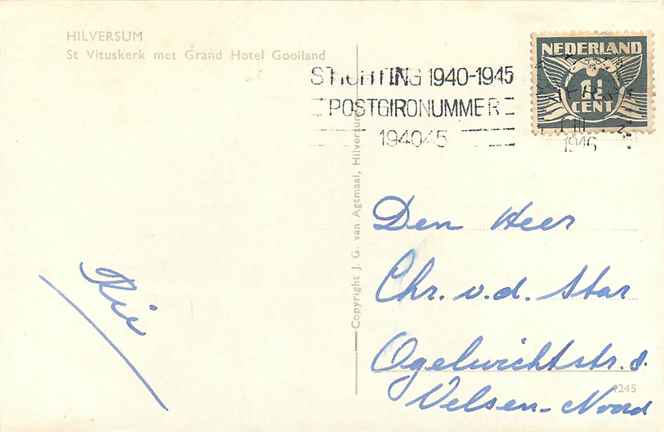 HILVERSUM
St Vituskerk met Grand Hotel Gooiland
STICHTING 1940-1945
POSTGIRONUMMER
194045
NEDERLAND
1½
CENT
1946
Copyright J. G. van Agtmaal, Hilversum
Den Heer
Chr. v.d. Star
Ogelwichtstr. 8.
Velsen-Noord
Rie
9245